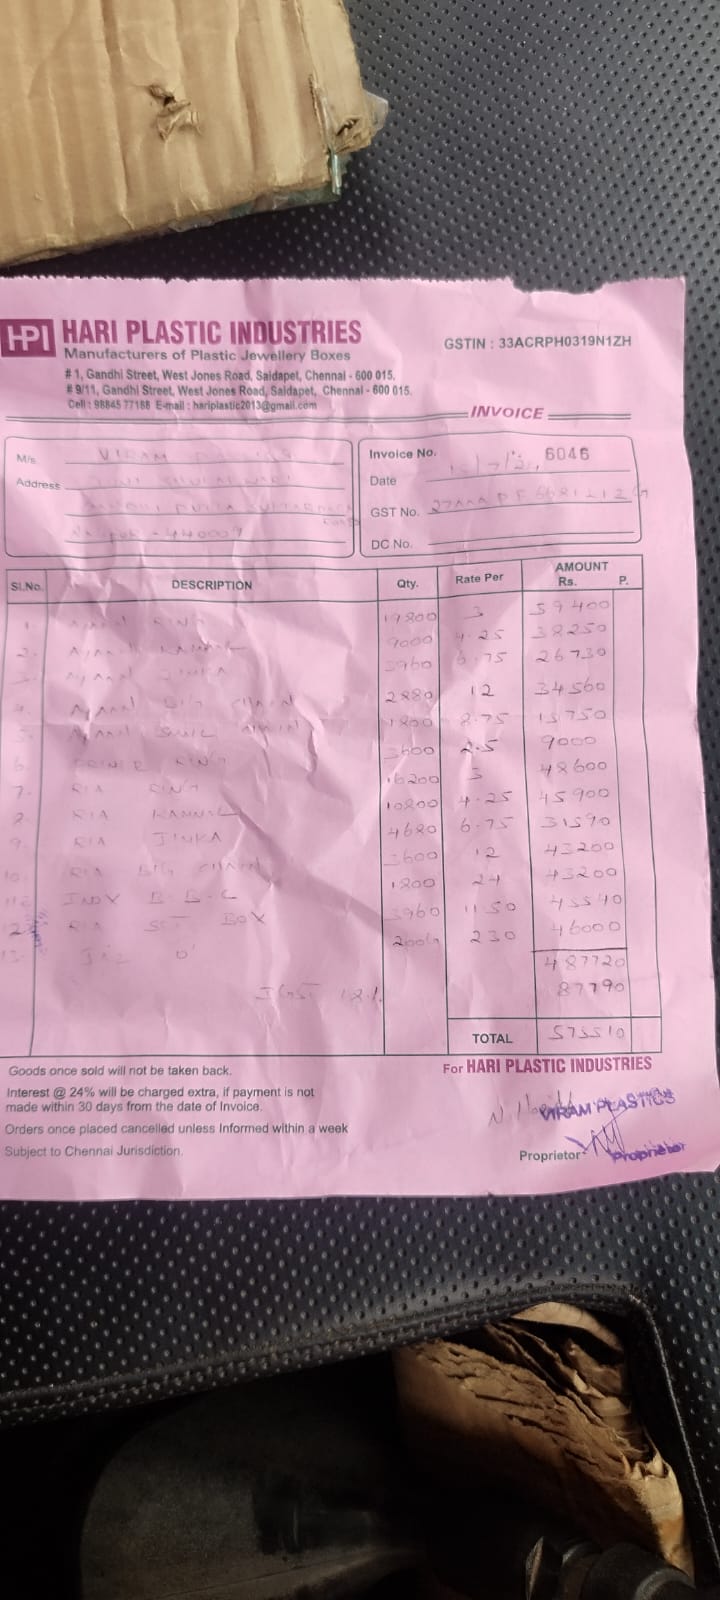 HPI HARI PLASTIC INDUSTRIES
Manufacturers of Plastic Jewellery Boxes
GSTIN : 33ACRPH0319N1ZH
# 1, Gandhi Street, West Jones Road, Saidapet, Chennai - 600 015.
# 9/11, Gandhi Street, West Jones Road, Saidapet, Chennai - 600 015.
Cell : 98845 77188 E-mail : hariplastic2013@gmail.com
INVOICE
M/s VIRAM
Address
440009
Invoice No. 6046
Date
GST No.
DC No.
Sl.No. DESCRIPTION Qty. Rate Per AMOUNT Rs. P.
1. RING 19800 3 59400
2. KAMMAL 9000 4.25 38250
3. JIMKA 3960 6.75 26730
4. BIG CHAIN 2880 12 34560
5. CHAIN 1800 8.75 15750
6. RING 3600 2.5 9000
7. RIA RING 16200 3 48600
8. RIA KAMMAL 10800 4.25 45900
9. RIA JIMKA 4680 6.75 31590
10. RIA BIG CHAIN 3600 12 43200
11. B.B.C 1800 24 43200
12. RIA SET BOX 3960 11.50 45540
13. 230 46000
487720
IGST 18% 87790
TOTAL 575510
Goods once sold will not be taken back.
For HARI PLASTIC INDUSTRIES
Interest @ 24% will be charged extra, if payment is not
made within 30 days from the date of Invoice.
Orders once placed cancelled unless Informed within a week
VIRAM PLASTICS
Subject to Chennai Jurisdiction.
Proprietor
Proprietor